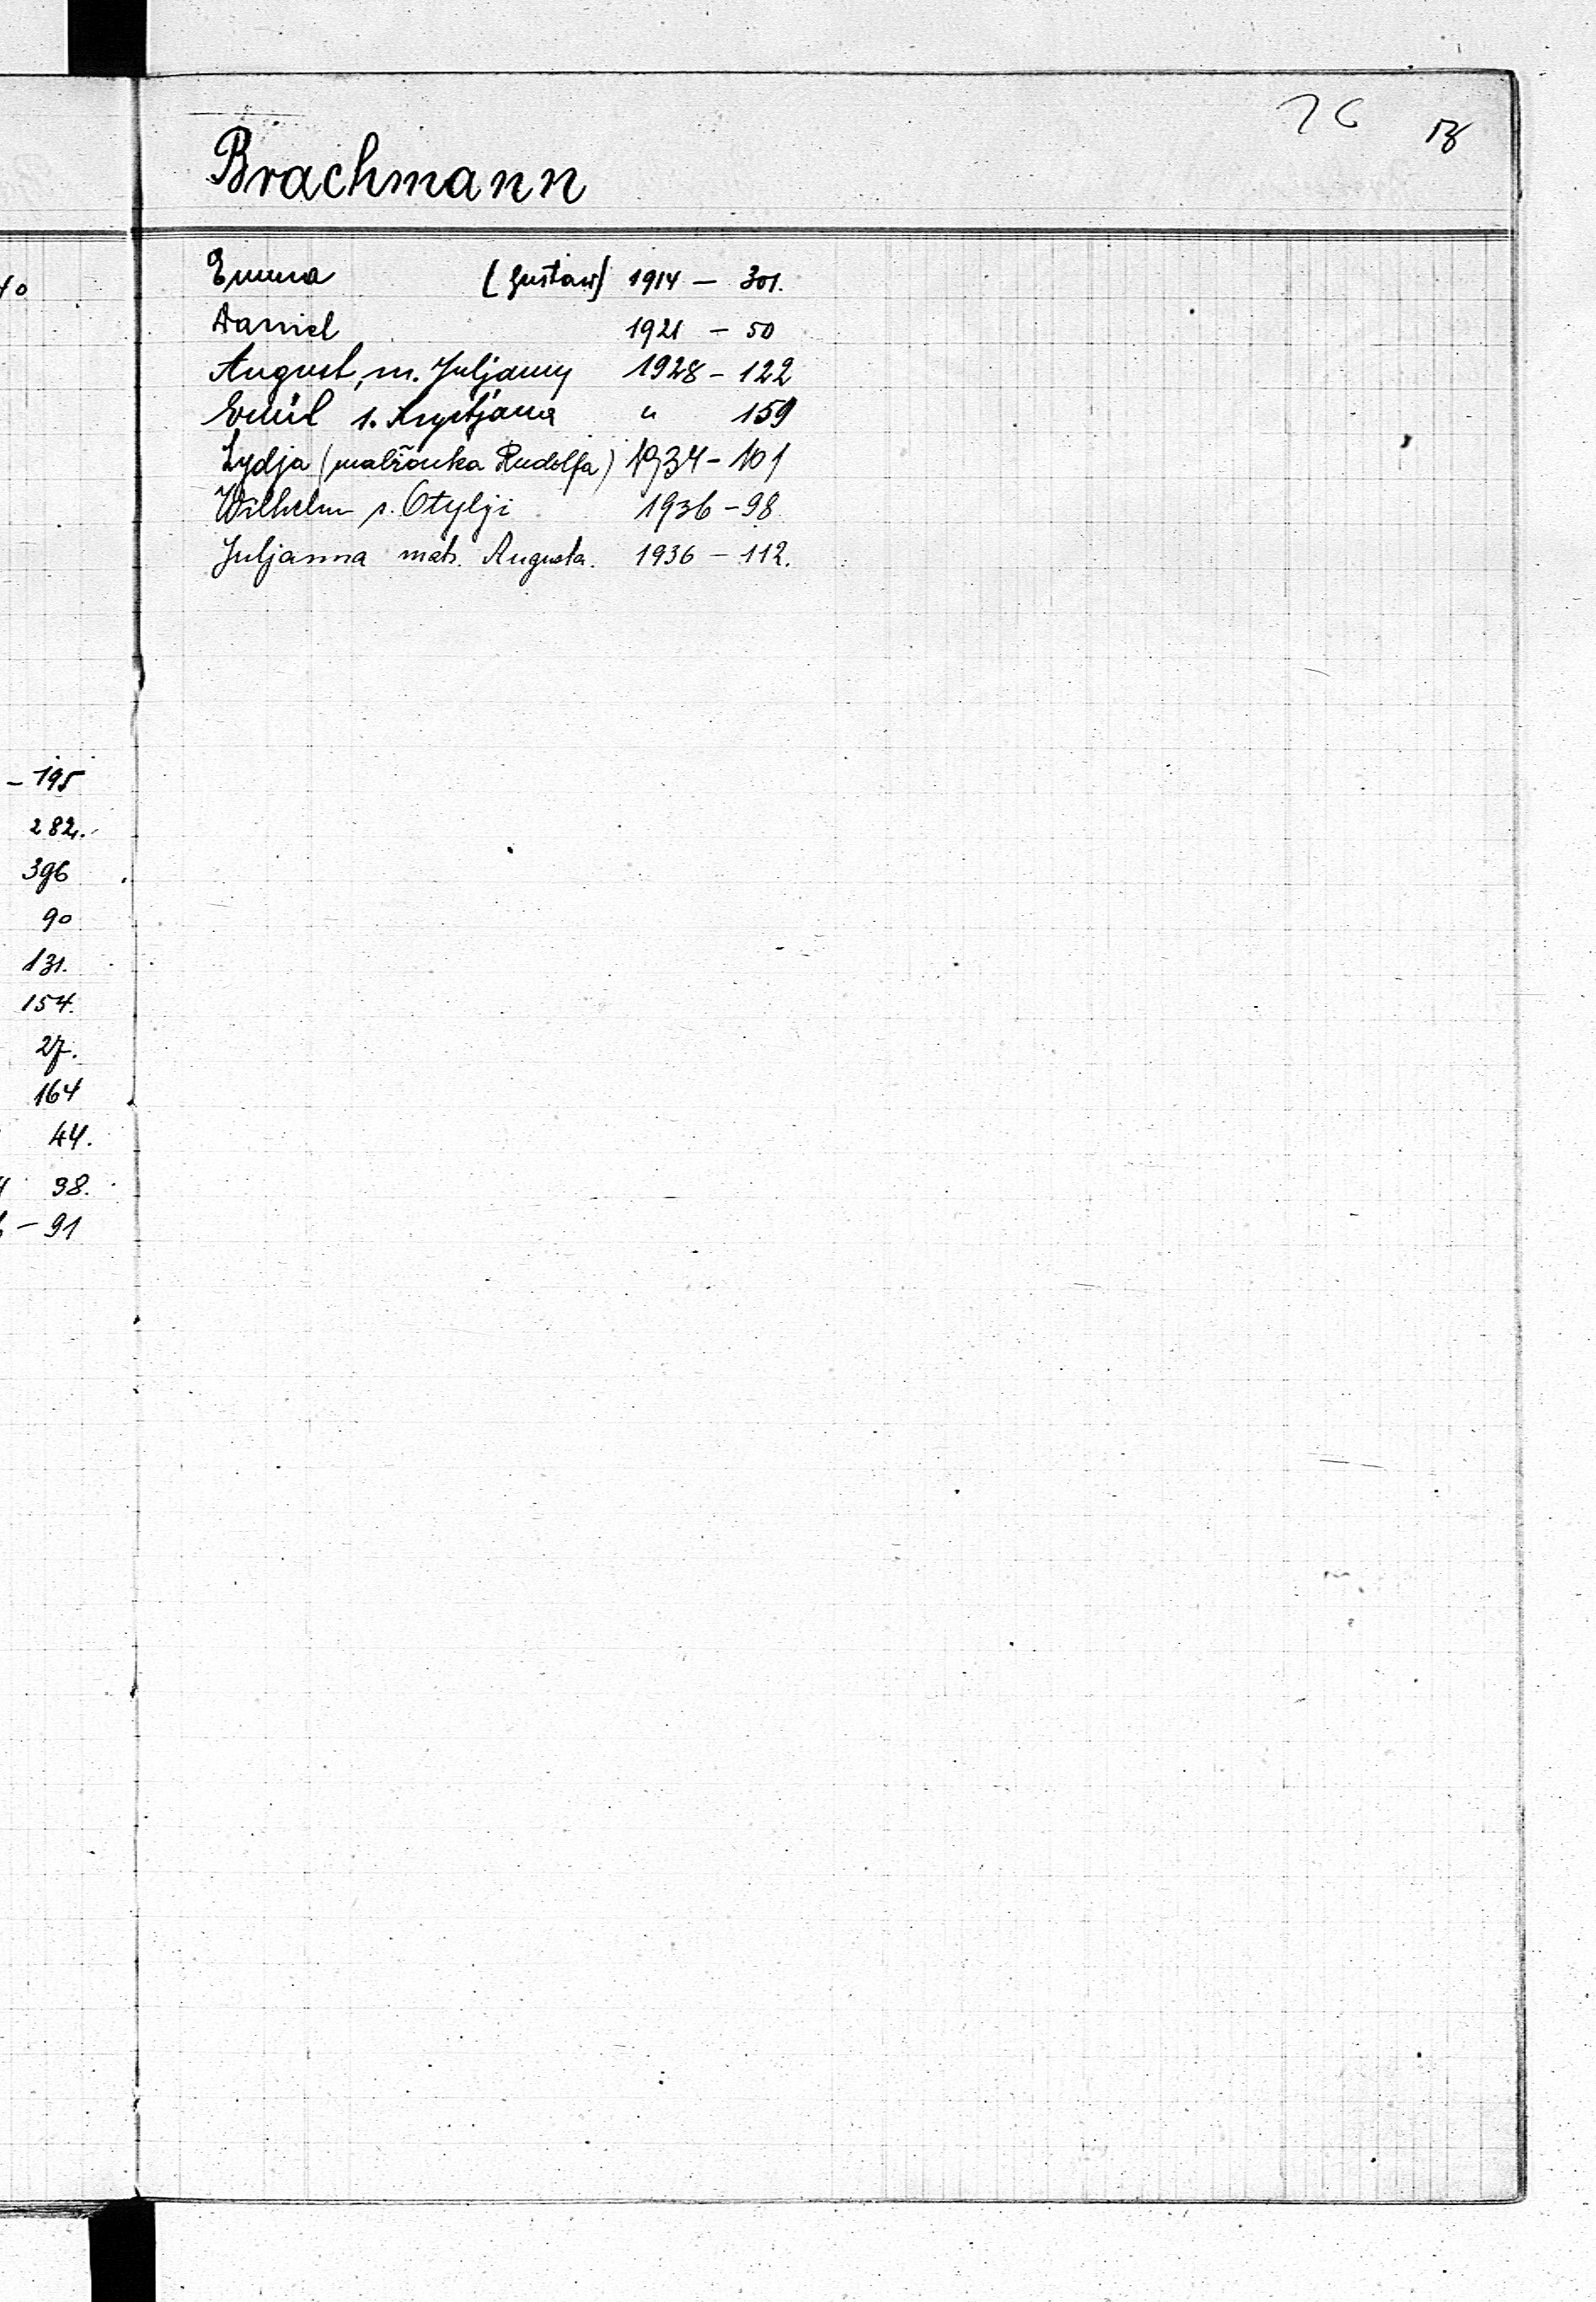 76 13
Brachmann
Emma (Gustaw) 1914 — 301.
Daniel 1921 — 50
August, m. Juljanny 1928 - 122
Emil s. Krystjana " 159
Lydja (małżonka Rudolfa) 1934 - 101
Wilhelm s. Otylji 1936 - 98
Juljanna mał. Augusta. 1936 — 112.
40
- 195
282.
396
90
131.
154.
27.
164
44.
98.
- 91